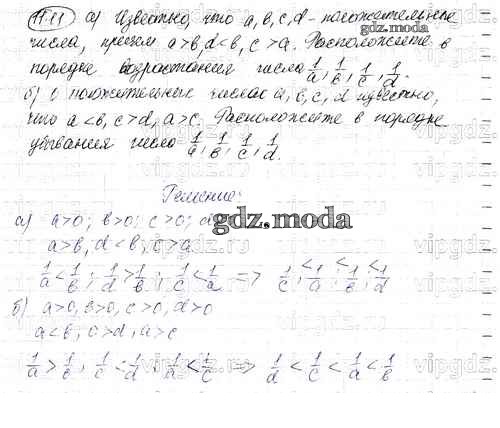 11.11 а) Известно, что a, b, c, d - положительные
числа, причем a > b, d < b, c > a. Расположите в
порядке возрастания числа 1/a, 1/b, 1/c, 1/d.
б) О положительных числах a, b, c, d известно,
что a < b, c > d, a > c. Расположите в порядке
убывания числа 1/a, 1/b, 1/c, 1/d.
Решение:
а) a>0; b>0; c>0; d
a>b, d<b, c>a
1/a < 1/b; 1/d > 1/b; 1/c < 1/a => 1/c < 1/a < 1/b < 1/d
б) a>0, b>0, c>0, d>0
a<b, c>d, a>c
1/a > 1/b, 1/c < 1/d, 1/a < 1/c => 1/d < 1/c < 1/a < 1/b
gdz.moda
gdz.moda
vipgdz